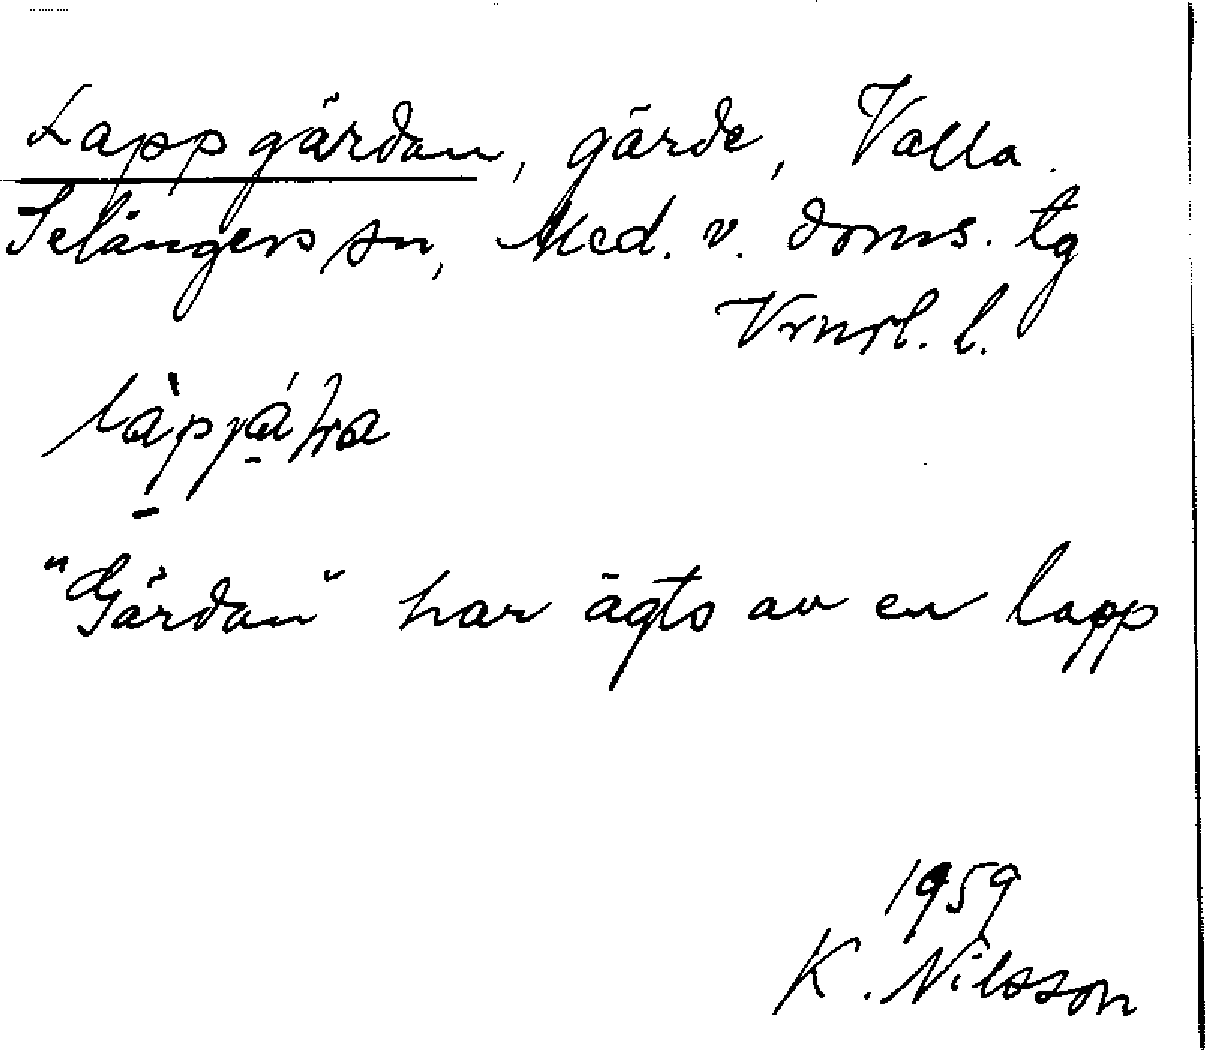 Lappgärdan, gärde, Valla.
Selångers sn, Med. v. doms. tg
Vrnsl. l.
"Gärdan" har ägts av en lapp
1959
K. Nilsson